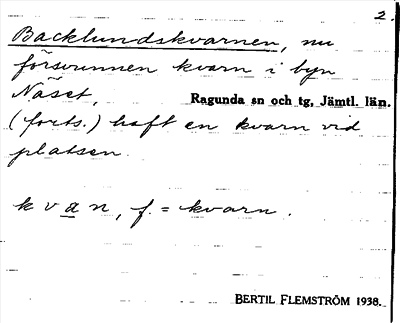 2.
Backlundskvarnen, nu
försvunnen kvarn i byn
Näset, Ragunda sn och tg, Jämtl. län.
(forts.) haft en kvarn vid
platsen.
kvan, f. = kvarn.
BERTIL FLEMSTRÖM 1938.